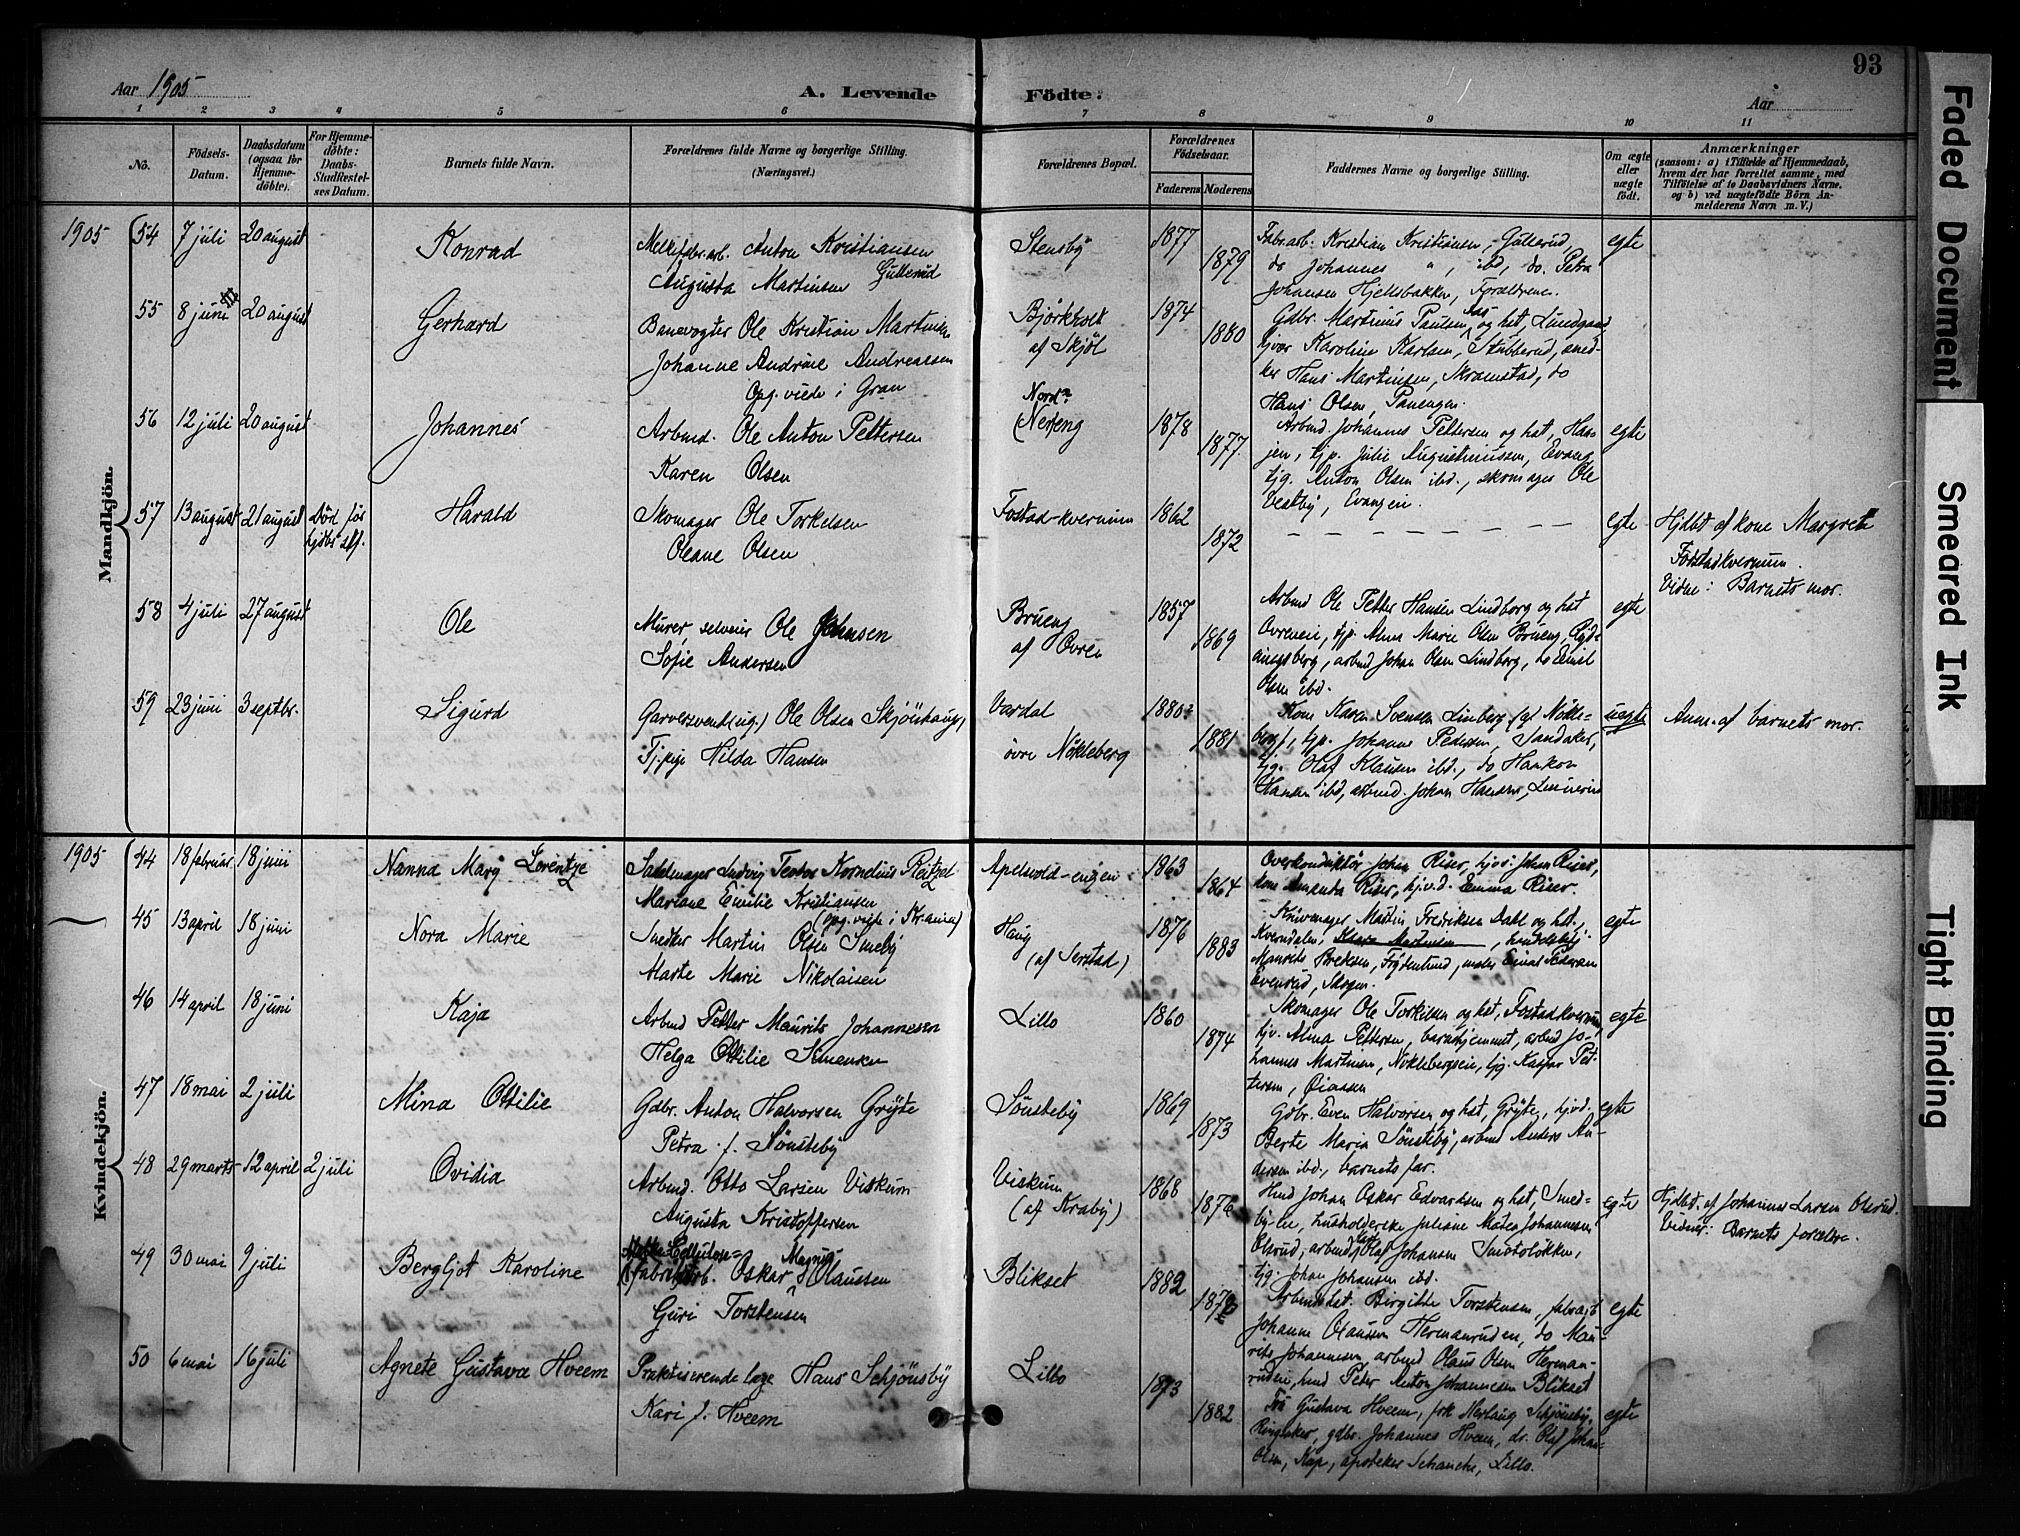 93
Aar 1905
A. Levende Födte.
Aar
1 2 3 4 5 6 7 8 9 10 11
No.
Födsels-Datum.
Daabsdatum (ogsaa for Hjemmedöbte).
For Hjemmedöbte: Daabs-Stadfæstelses Datum.
Barnets fulde Navn.
Forældrenes fulde Navne og borgerlige Stilling. (Næringsvei.)
Forældrenes Bopæl.
Forældrenes Födselsaar.
Faderens Moderens
Faddernes Navne og borgerlige Stilling.
Om ægte eller uægte födt.
Anmærkninger
(saasom: a) i Tilfælde af Hjemmedaab, hvem der har forrettet samme, med Tilföielse af to Daabsvidners Navne, og b) ved uægtefödte Börn Anmelderens Navn m. V.)
Mandkjön.
1905 54 7 juli 20 august Konrad
Anton Kristiansen Gullerud
Augusta Martinsen
Stensby 1877 1879
Fabr.arb. Kristian Kristiansen, Gullerud,
do Johannes " , ibd, do. Petra
Johansen Hjellsbakken, Forældrene.
egte
55 8 juni 20 august Gerhard
Banevogter Ole Kristian Martinsen
Johanne Andrine Andreassen
Opg. viede i Gran
Bjørkholt
af Skjøl
1874 1880
Gdbr. Martinus Paulsen og hst, Lundgaard,
tjver Karoline Karlsen, Stubberud, sned-
ker Hans Martinsen, Skramstad, do
Hans Olsen, Panengen.
56 12 juli 20 august Johannes
Arbmd. Ole Anton Pettersen
Karen Olsen
Nordre
Nereng
1878 1877
Arbmd. Johannes Pettersen og hst, Haa-
jen, tjp. Julie Augustinussen, Evang
tjg. Anton Olsen ibd., skomager Ole
Vestby, Evangen.
egte
57 13 august 21 august Harald
Skomager Ole Torkelsen
Oleane Olsen
Fostad-kvernum 1862 1872
egte
Hjdbt af kone Margrete
Fostadkvernum.
Vidne: Barnets mor.
58 4 juli 27 august Ole
Murer, selveier Ole Johnsen
Sofie Andersen
Brueng
af Øvren
1857 1869
Arbmd Ole Petter Hansen Lindborg og hst
Øvreneie, tjp. Alma Marie Olsen Brueng, Ryd-
ningsberg, arbmd Johan Olsen Lindborg, do Emil
Olsen ibd.
egte
59 23 juni 3 septbr. Sigurd
Garversvend (ug.) Ole Olsen Skjønhaug,
Tj.pige Hilda Hansen
Vardal
øvre Nøkleberg
1880 1881
Kone Karen Svensen Linberg (gl Nøkle-
berg), tjp. Johanne Pedersen, Sandaker,
tjg. Olaf Klausen ibd., do Haakon
Hansen ibd, arbmd. Johan Hansen,
uegte
Anm. af barnets mor.
Kvindekjön.
1905 44 18 februar 18 juni Nanna Mary Lorentze
Sadelmager Ludvig Teodor Kornelius Reitzel
Mariane Emilie Kristiansen
(opg. viede i Kr.ania)
Apelsvold-engen 1863 1864
Overkonduktør Johan Riser, hjvs: Johan Riser,
kone Amanda Riser, hjv.d. Emma Riser.
45 13 april 18 juni Nora Marie
Snedker Martin Olsen Smeby
Marte Marie Nikolaisen
Haug
(af Serstad)
1876 1883
Martin Fredriksen Dahl og hst,
Kverndalen, , handelsbtj.
Maurits Breksen, Frydenlund, maler Einar Pedersen
Evenrud, Skogen.
egte
46 14 april 18 juni Kaja
Arbmd Petter Maurits Johannesen
Helga Ottilie Simensen
Lillo 1860 1874
Skomager Ole Torkilsen og hst, Fostadkvernum,
hjv. Alma Pettersen, barnehjemmet, arbmd Jo-
hannes Martinsen, Nøklebergeie, tjg. Kaspar Pet-
tersen, Øiaasen
egte
47 18 mai 2 juli Mina Ottilie
Gdbr. Anton Halvorsen Gryte
Petra f. Sønsteby
Sønsteby 1869 1873
Gdbr. Even Halvorsen og hst, Gryte, hjvd.
Berte Maria Sønsteby, arbmd Anders An-
dersen ibd., barnets far.
egte
48 29 marts 12 april 2 juli Ovidia
Arbmd. Otto Larsen Viskum
Augusta Kristoffersen
Viskum
(af Kraby)
1868 1876
Hmd Johan Oskar Edvardsen og hst, Smed-
by-eie, husholderske Juliane Matea Johannesen
Olsrud, arbmd Olaf Johansen Smstoløkken,
tjg. Johan Johansen ibd.
egte
Hjdbt. af Johannes Larsen Olsrud.
Vidner: Barnets forældre.
49 30 mai 9 juli Bergljot Karoline
Cellulose-
fabrikarb. Oskar Magnus Olaussen
Guri Torstensen
Blikset 1882
Birgitte Torstensen, fabrarb
Johanne Olaussen Hermanruden, do Mau-
rits Johannesen, arbmd Olaus Olsen Herman-
ruden, hmd Peter Anton Johannesen Blikset
egte
50 6 mai 16 juli Agnete Gustava Hveem
Praktiserende læge Hans Schjønsby
Kari f. Hveem
Lillo 1873 1882
Fru Gustava Hveem, frk Nerlaug Schjønsby,
Ringsaker, gdbr. Johannes Hveem, dr. Olaf Johan
Olsen, Kap, apoteker Schanche, Lillo.
egte
Faded Document
Smeared Ink
Tight Binding